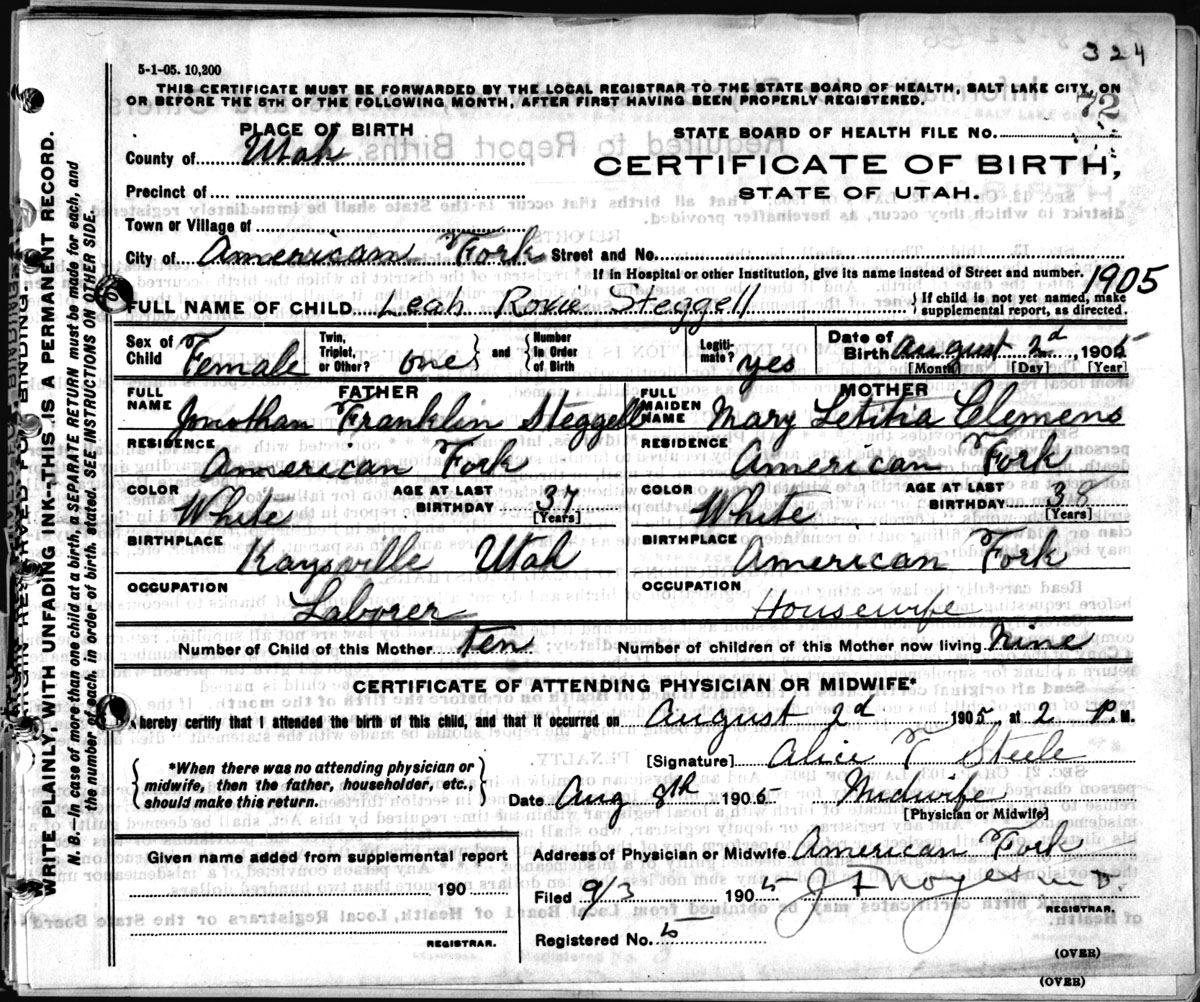 324
5-1-05. 10,200
THIS CERTIFICATE MUST BE FORWARDED BY THE LOCAL REGISTRAR TO THE STATE BOARD OF HEALTH, SALT LAKE CITY, ON
OR BEFORE THE 5TH OF THE FOLLOWING MONTH, AFTER FIRST HAVING BEEN PROPERLY REGISTERED.
72
PLACE OF BIRTH
STATE BOARD OF HEALTH FILE NO.
County of Utah
CERTIFICATE OF BIRTH,
Precinct of
STATE OF UTAH.
Town or Village of
City of American Fork Street and No.
If in Hospital or other Institution, give its name instead of Street and number.
1905
FULL NAME OF CHILD Leah Rovie Steggell { If child is not yet named, make
supplemental report, as directed.
Sex of Child Female Twin, Triplet, or Other? one } and { Number In Order of Birth Legitimate? yes Date of Birth August 2d, 1905
[Month] [Day] [Year]
FATHER
MOTHER
FULL NAME Jonothan Franklin Steggell
FULL MAIDEN NAME Mary Letitia Clemens
RESIDENCE American Fork
RESIDENCE American Fork
COLOR White AGE AT LAST BIRTHDAY 37 [Years]
COLOR White AGE AT LAST BIRTHDAY 38 [Years]
BIRTHPLACE Kaysville Utah
BIRTHPLACE American Fork
OCCUPATION Laborer
OCCUPATION Housewife
Number of Child of this Mother ten Number of children of this Mother now living Nine
CERTIFICATE OF ATTENDING PHYSICIAN OR MIDWIFE*
I hereby certify that I attended the birth of this child, and that it occurred on August 2d 1905, at 2 P. M.
[Signature] Alice T Steele
{ *When there was no attending physician or
midwife, then the father, householder, etc.,
should make this return. }
Date Aug 8th 1905 Midwife
[Physician or Midwife]
Given name added from supplemental report
190
REGISTRAR.
Address of Physician or Midwife American Fork
Filed 9/3 1905 J F Noyes M D.
REGISTRAR.
Registered No. 5
(OVER)
(OVER)
WRITE PLAINLY, WITH UNFADING INK--THIS IS A PERMANENT RECORD.
N. B.—In case of more than one child at a birth, a SEPARATE RETURN must be made for each, and
the number of each, in order of birth, stated. SEE INSTRUCTIONS ON OTHER SIDE.
MARGIN RESERVED FOR BINDING.